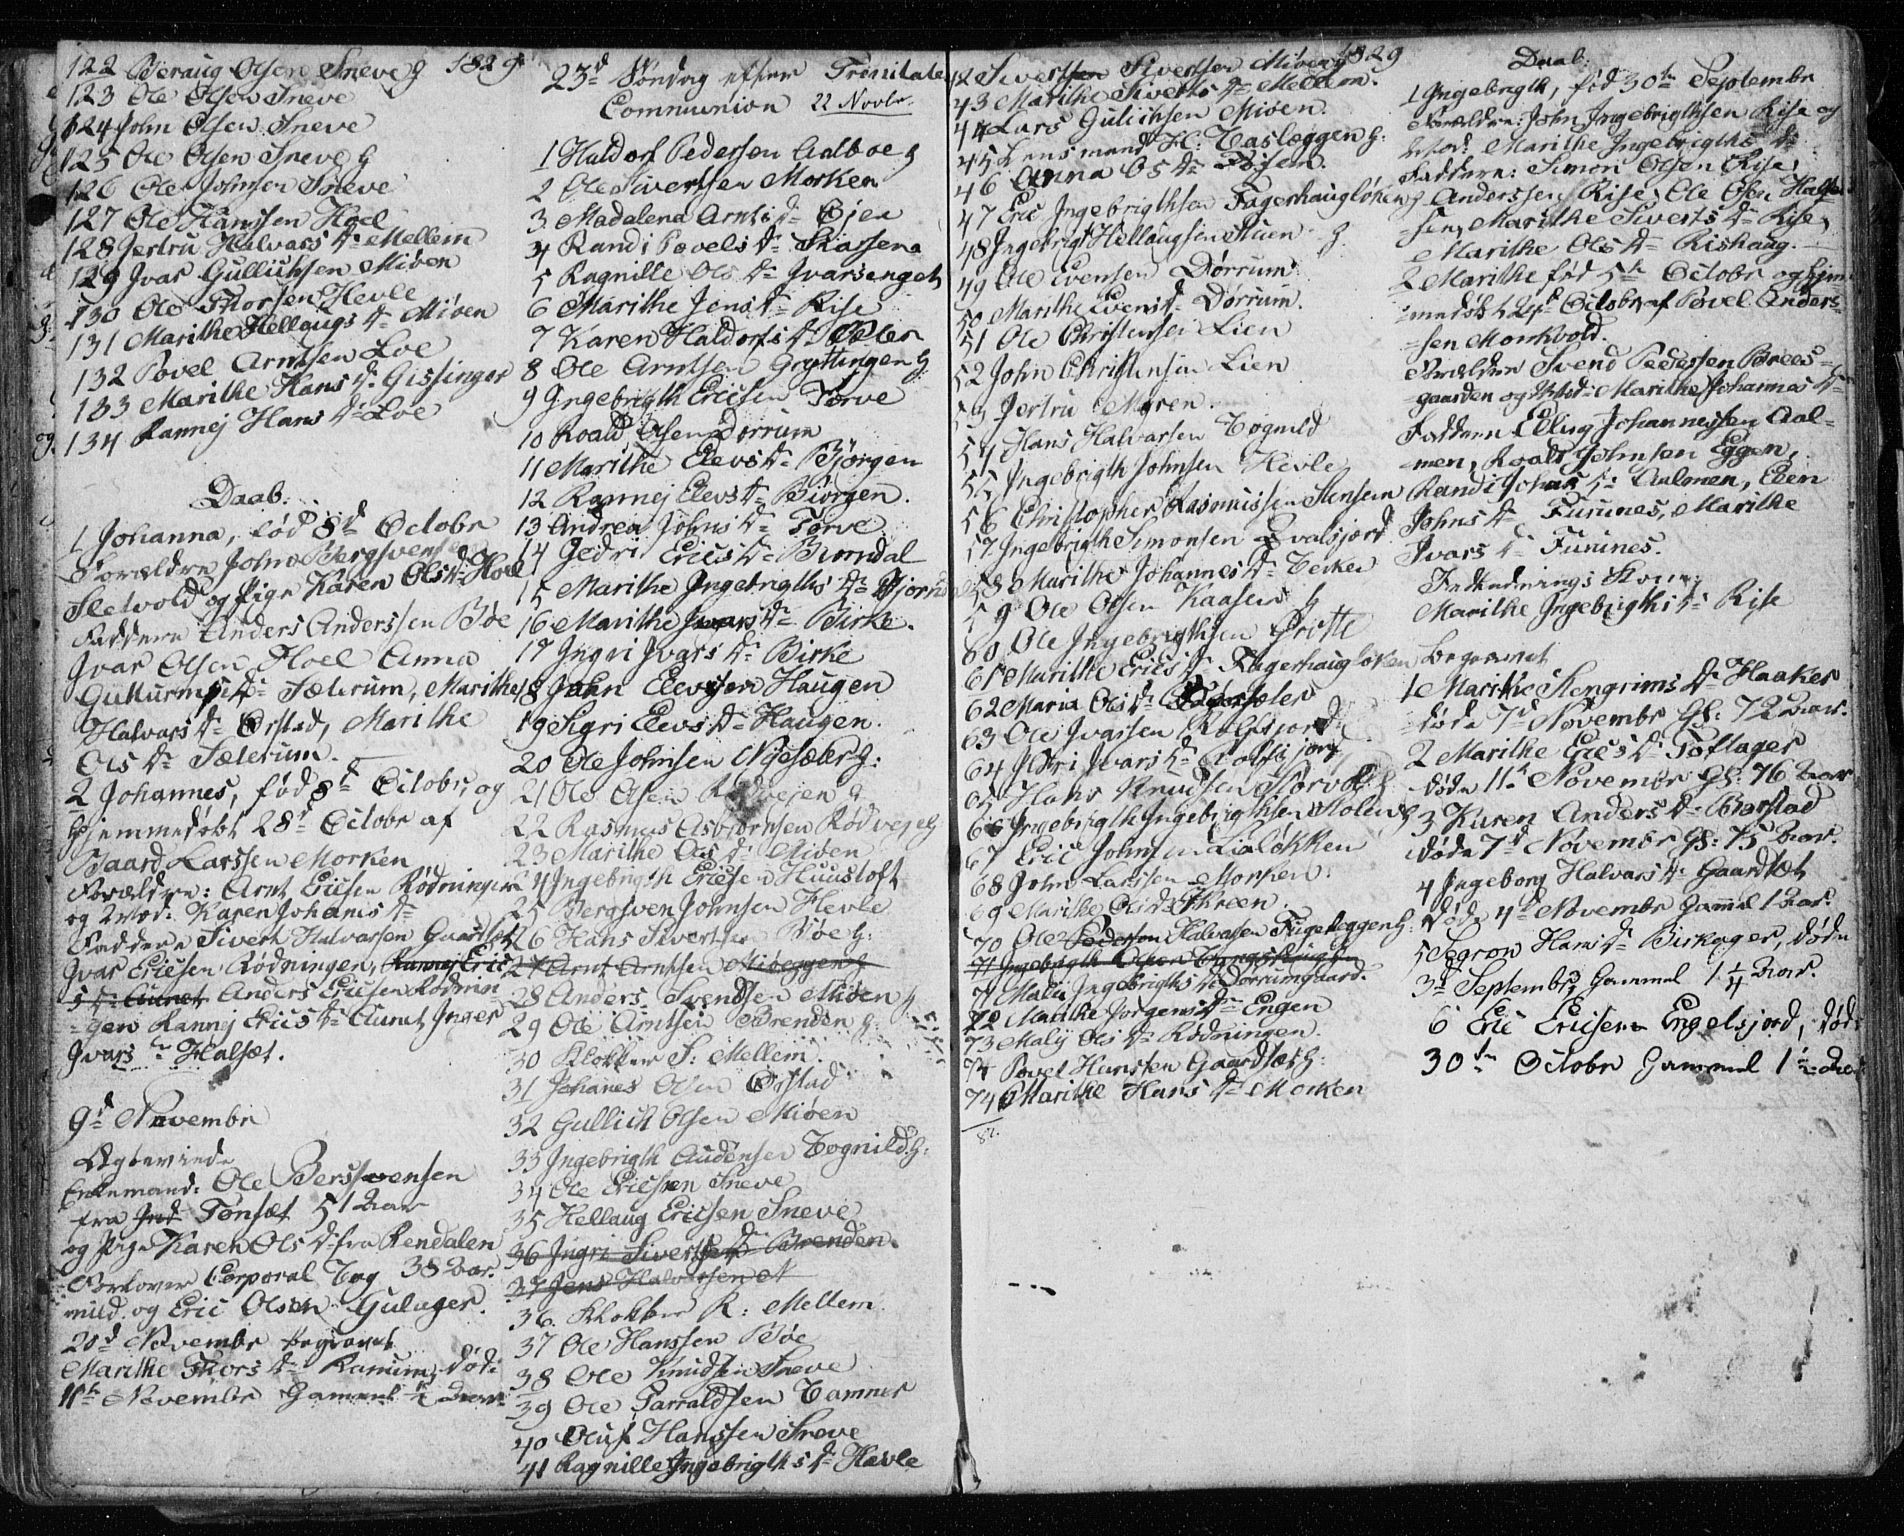 122 Beraug Olsen Sneve g 1829
123 Ole Olsen Sneve
124 John Olsen Sneve
125 Ole Olsen Sneve g
126 Ole Johnsen Sneve
127 Ole Hanssen Hoel
128 Jertru Halvars Dr Mellem
129 Jvar Gullichsen Miöen
130 Ole Thorsen Hevle
131 Marithe Hellaugs Dr Miöen
132 Povel Arntsen Loe
133 Marithe Hans Dr Gissinger
134 Rannej Hans Dr Loe
Daab:
1 Johanna, föd 8d Octobr
Forældre John Bergsvensen
Sletvold og Pige Karen Ols Dr Hoel
Faddere Anders Anderssen Böe
Jvar Olsen Hoel Anna
Sæterum, Marithe
Halvars Dr Örstad, Marithe
Ols Dr Sæterum.
2 Johannes, föd 8d Octobr, og
hjemmedöbt 28d Octobr af
Baard Larssen Morken
Forældre: Arnt Ericsen Rödningen
og Mod: Karen Johanis Dr
Faddere Sivert Halvorsen Gaardsæt
Jvar Ericsen Rödningen, Rannej Erics
Aunet Anders Ericsen Rödnin
=gen Rannej Erics Dr Aunet Jnger
Jvars Dr Halsæt.
9d Novembr
Ægtevi​ede
Enkemand: Ole Bersvensen
fra Tönset 51 Aar
og Pige Karen Ols Dr fra Rendalen
Forlover Corporal Tog 38 Aar.
mild, og Eric Olsen Gulager.
20d Novembr begravet
Marithe Thors Dr Ranum, döde
11te Novembr Gammel ½ Aar
23d Söndag efter Trinitatis
Communion 22 Novbr.
1 Haldorf Pedersen Aalboe g
2 Ole Sivertsen Morken
3 Madalena Arnts Dr Öien
4 Randi Povels Dr Skassene
5 Ragnille Ols Dr Jvarsenget
6 Marithe Jens Dr Rise
7 Karen Haldorfs Dr
8 Ole Arntsen Gryttingen g.
9 Jngebrigth Ericsen Torve
10 Roald Olsen Dorrum
11 Marithe Elevs Dr Björgen
12 Rannej Elevs Dr Björgen.
13 Andrea Johns Dr Torve
14 Gedri Erics Dr Bjørndal
15 Marithe Jngebrigths Dr
16 Marithe Jvars Dr Birke.
17 Jngri Jvars Dr Birke
18 John Elevsen Haugen
19 Sigri Elevs Dr Haugen.
20 Ole Johnsen Nysæter g:
21 Ole Olsen Rödvejen g
22 Rasmus Asbiörnsen Rödvej g
23 Marithe Ols Dr Miöen
24 Jngebrigth Ericsen Huustoft
25 Bergsven Johnsen Hevle
26 Hans Sivertsen Böe g:
27 Arnt Arntsen Mibeggen g
28 Anders Svendsen Miöen g
29 Ole Arntsen Brenden g.
30 Klokker S: Mellem.
31 Johanes Olsen Örstad
32 Gullich Olsen Miöen
33 Jngebrigth Audensen Tognild g:
34 Ole Ericsen Sneve
35 Hellaug Ericsen Sneve
36 Jngri Sivertsen Dr Brenden.
37 Jens Halvorsen N
36. Klokker R: Mellem
37 Ole Hanssen Böe
38 Ole Knudsen Sneve
39 Ole Parraldsen Tamnes
40 Oluf Hanssen Sneve
41 Ragnille Jngebrigths Dr Hævle
42 Sivertsen Sivertsen Miöen g 1829
43 Marithe Siverts Dr Mellem.
44 Lars Gulichsen Miöen.
45 Lensmand H: Tasleggen g:
46 Anna Ols Dr
47 Eric Jngebrigthsen Fagerhauglöken g
48 Jngebrigt Hellaugsen Stuen g
49 Ole Evensen Dörrum
50 Marithe Evens Dr Dörrum.
51 Ole Christensen Lien
52 John Christensen Lien
53 Jertru Myren.
54 Hans Halvarsen Tognild
55 Jngebrigth Johnsen Hevle
56 Christopher Rasmussen Stensem
57 Jngebrigth Simonsen Hvalsjord
58 Marithe Johannes Dr
59 Ole Olsen Kaasen g
60 Ole Jngebrigthsen Grötte
61 Marithe Erics Dr Fagerhauglöken
62 Maria Ols Dr
63 Ole Jvarsen Rolfsjord
64 Jldri Jvars Dr Rolfsjord
65 Hans Knudsen Storvold g
66 Jngebrigth Jngebrigthsen Stölen g
67 Eric Johnsen Lialökken
68 John Larssen Morken.
69 Marithe Ols Dr Threen.
70 Ole Pedersen Halvasen Fugeleggen g:
71 Jngebrigth
71 Mali Jngebrigths Dr Dörrumgaard.
72 Marithe Jörgens Dr Engen
73 Malij Ols Dr Rödningen.
74 Povel Hansten Gaardsæt g:
74 Marithe Hans Dr Morken
82.
Daab:
1 Jngebrigth, föd 30te Septembr
Forældre: John Jngebrigthsen Rise og
Mod: Marithe Jngebrigths Dr
Faddere: Simon Olsen Rise,
Anderssen Rise, Ole Olsen Halse
=sen, Marithe Siverts Dr Rise,
Marithe Ols Dr Rishaug.
2 Marithe föd 5te Octobr og hjem=
medöbt 24d Octobr af Povel Anders=
=sen Monkvold.
Forældre Svend Pedersen Brees=
gaarden og Mod: Marithe Johannes Dr
Faddere Elling Johannessen Aal=
men, Roald Johnsen Eggen,
Randi Johns Dr Aalmen, Eden
Johns Dr Fuunes, Marithe
Jvars Dr Fuunes.
Jntrednings Kone
Marithe Jngebrigths Dr Rise
Begravet
1 Marithe Stengrims Dr Haaker
döde 7d Novembr Gl: 72 Aar.
2 Marithe Erics Dr Toftager
döde 11te Novembr Gl: 76 Aar
3 Karen Anders Dr Börstad
döde 7d Novembr Gl: 75 Aar.
4 Jngeborg Halvars Dr Gaardsæt
döde 4d Novembr Gammel 1 Aar.
5 Segron Hans Dr Birkager, döde
3d Septembr, Gammel 1¼ Aar.
6 Eric Ericsen Engelsjord, död
30te Octobr Gammel 1½ Aar